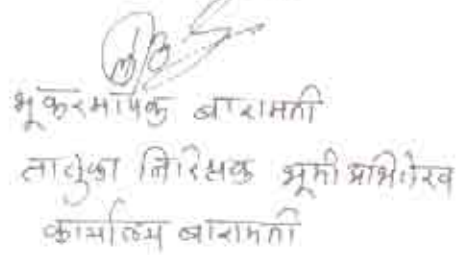 भूकरमापक बारामती
तालुका निरिक्षक भूमी अभिलेख
कार्यालय बारामती